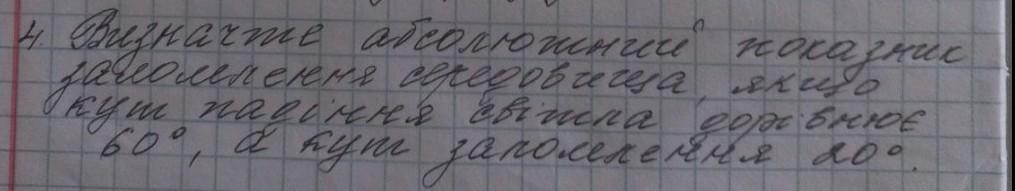 4. Визначте абсолютний показник
заломлення середовища, якщо
кут падіння світла дорівнює
60°, а кут заломлення 20°.